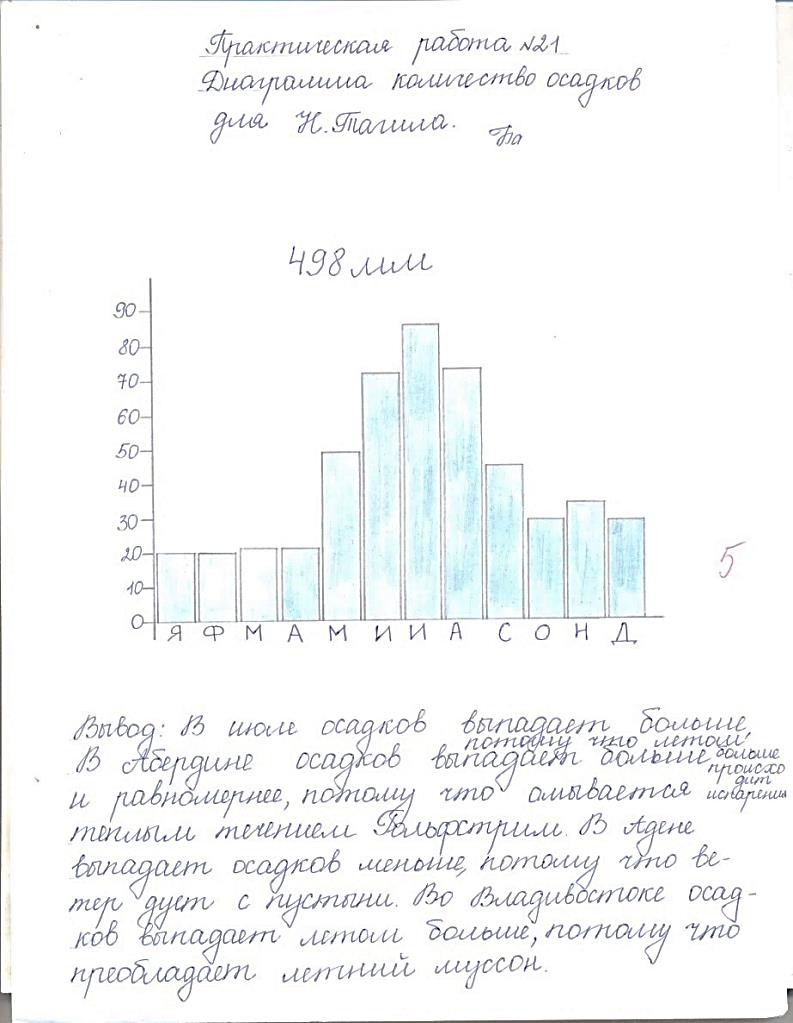 Практическая работа №21
Диаграмма количество осадков
для Н.Тагила.
498 мм
90
80
70
60
50
40
30
20
10
0
Я Ф М А М И И А С О Н Д
5
Вывод: В июле осадков выпадает больше,
потому что летом больше происходит испарения
В Абердине осадков выпадает больше
и равномернее, потому что омывается
тёплым течением Гольфстрим. В Адене
выпадает осадков меньше, потому что ве-
тер дует с пустыни. Во Владивостоке осад-
ков выпадает летом больше, потому что
преобладает летний муссон.